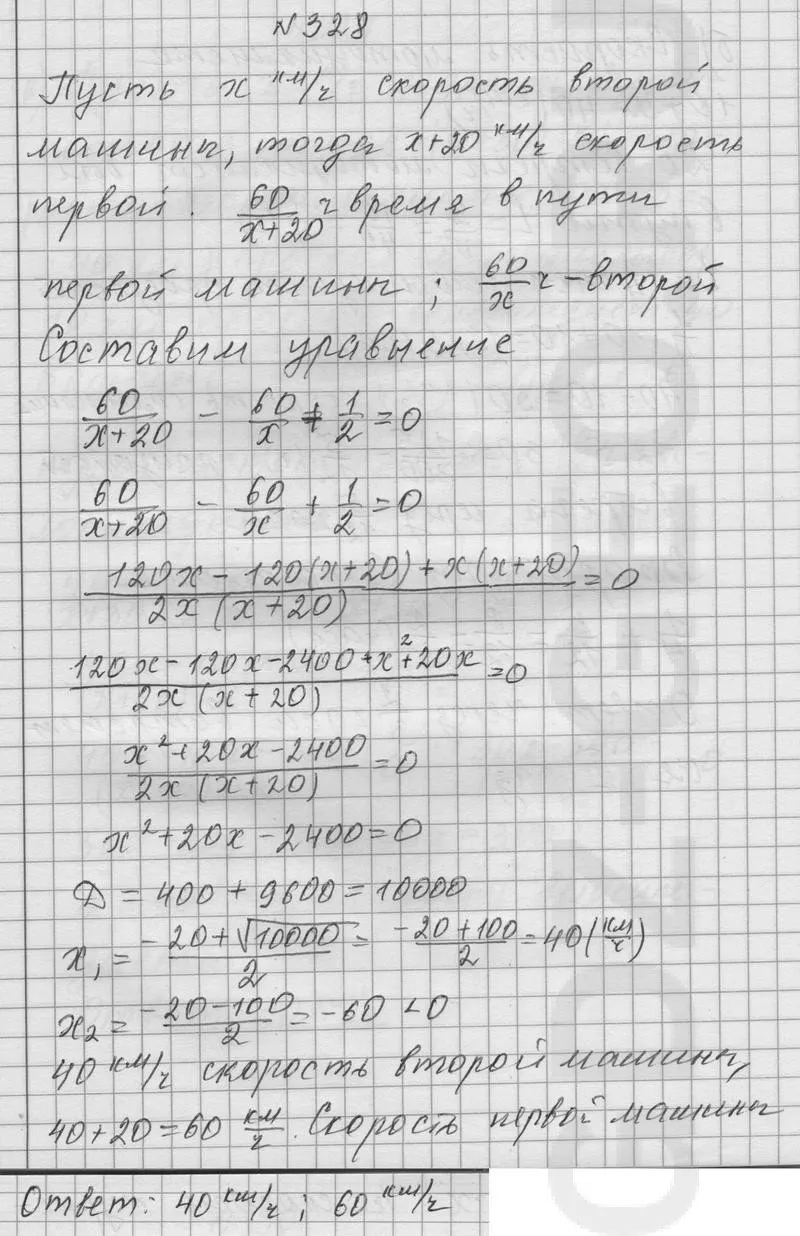 № 328
Пусть x км/ч скорость второй
машины, тогда x+20 км/ч скорость
первой. 60/(x+20) ч время в пути
первой машины; 60/x ч – второй
Составим уравнение
60/(x+20) − 60/x + 1/2 = 0
60/(x+20) − 60/x + 1/2 = 0
(120x − 120(x+20) + x(x+20))/(2x(x+20)) = 0
(120x − 120x − 2400 + x² + 20x)/(2x(x+20)) = 0
(x² + 20x − 2400)/(2x(x+20)) = 0
x² + 20x − 2400 = 0
D = 400 + 9600 = 10000
x₁ = (−20 + √10000)/2 = (−20 + 100)/2 = 40 (км/ч)
x₂ = (−20 − 100)/2 = −60 < 0
40 км/ч скорость второй машины,
40 + 20 = 60 км/ч. Скорость первой машины
Ответ: 40 км/ч; 60 км/ч